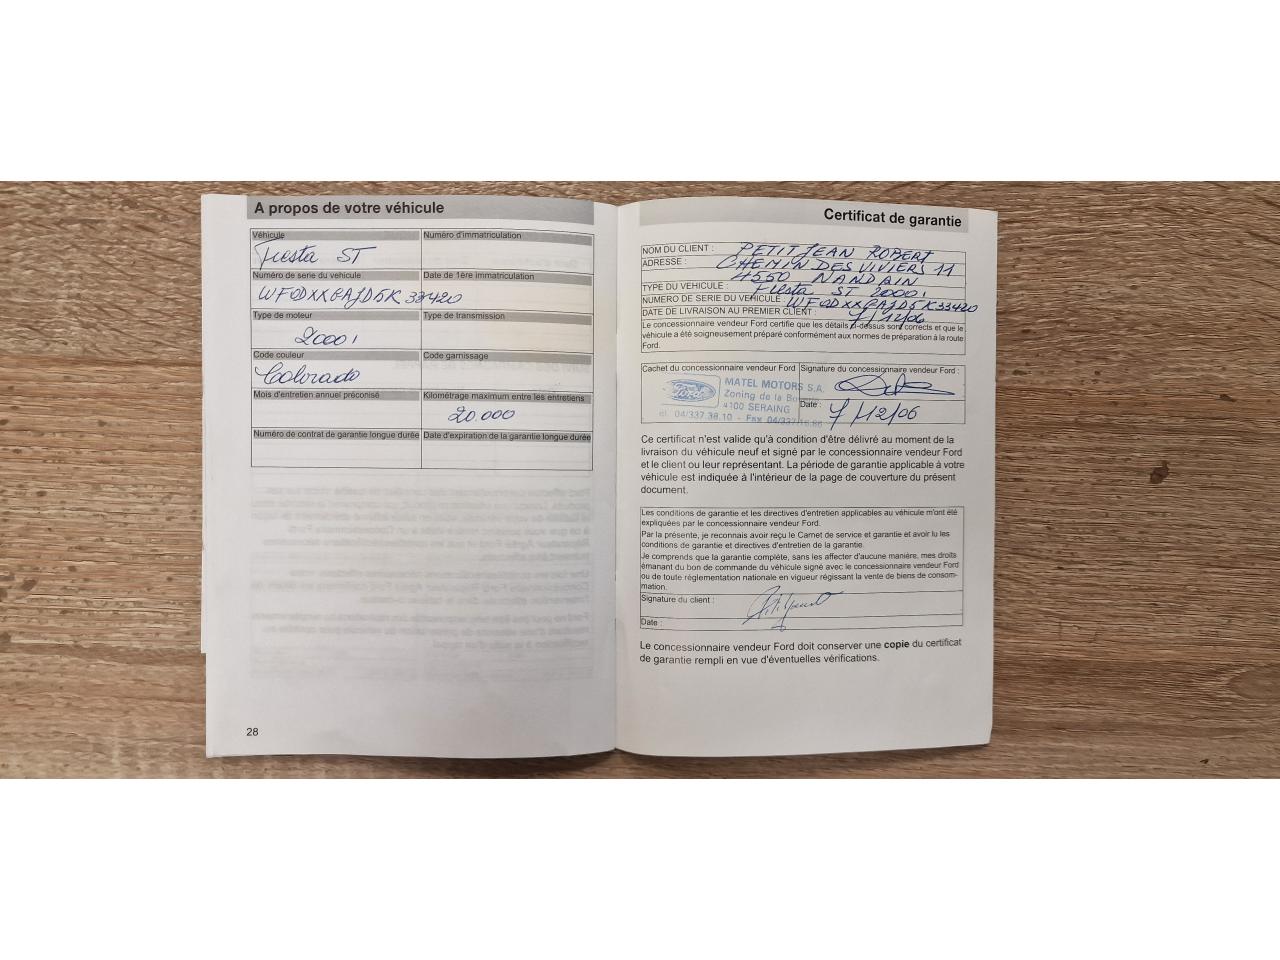 A propos de votre véhicule
Véhicule
Numéro d'immatriculation
Fiesta ST
Numéro de serie du vehicule
Date de 1ère immatriculation
WF0DXXGAJD5K33420
Type de moteur
Type de transmission
2000i
Code couleur
Code garnissage
Colorado
Mois d'entretien annuel préconisé
Kilométrage maximum entre les entretiens
20.000
Numéro de contrat de garantie longue durée
Date d'expiration de la garantie longue durée
28
Certificat de garantie
NOM DU CLIENT : PETITJEAN ROBERT
ADRESSE : CHEMIN DES VIVIERS 11
4550 NANDRIN
TYPE DU VEHICULE : Fiesta ST 2000i
NUMERO DE SERIE DU VEHICULE : WF0DXXGAJD5K33420
DATE DE LIVRAISON AU PREMIER CLIENT : 7/12/06
Le concessionnaire vendeur Ford certifie que les détails ci-dessus sont corrects et que le
véhicule a été soigneusement préparé conformément aux normes de préparation à la route
Ford.
Cachet du concessionnaire vendeur Ford
Signature du concessionnaire vendeur Ford :
Ford
MATEL MOTORS S.A.
Zoning de la
4100 SERAING
tél. 04/337.38.10 - Fax 04/337.16.86
Date : 7/12/06
Ce certificat n'est valide qu'à condition d'être délivré au moment de la
livraison du véhicule neuf et signé par le concessionnaire vendeur Ford
et le client ou leur représentant. La période de garantie applicable à votre
véhicule est indiquée à l'intérieur de la page de couverture du présent
document.
Les conditions de garantie et les directives d'entretien applicables au véhicule m'ont été
expliquées par le concessionnaire vendeur Ford.
Par la présente, je reconnais avoir reçu le Carnet de service et garantie et avoir lu les
conditions de garantie et directives d'entretien de la garantie.
Je comprends que la garantie complète, sans les affecter d'aucune manière, mes droits
émanant du bon de commande du véhicule signé avec le concessionnaire vendeur Ford
ou de toute réglementation nationale en vigueur régissant la vente de biens de consom-
mation.
Signature du client :
Date :
Le concessionnaire vendeur Ford doit conserver une copie du certificat
de garantie rempli en vue d'éventuelles vérifications.